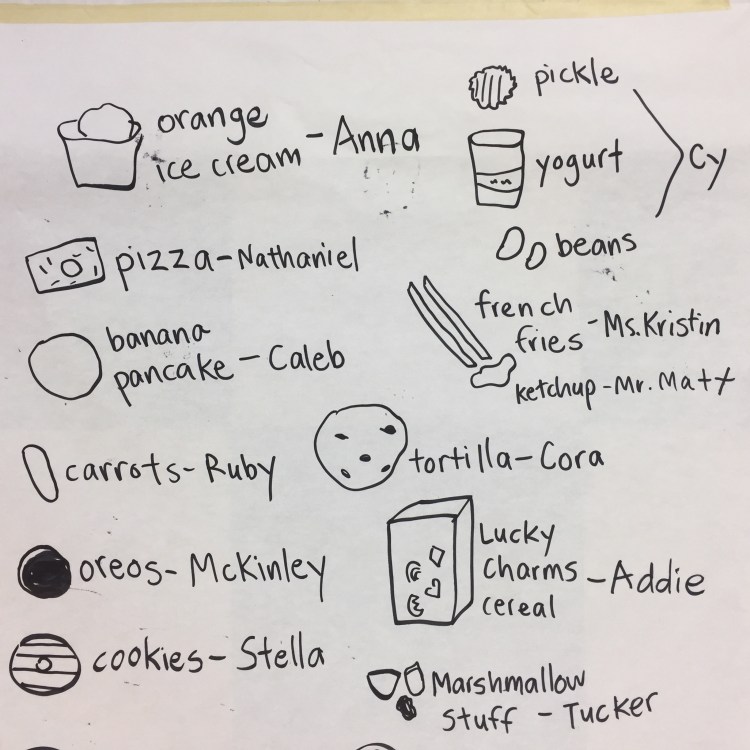 orange
ice cream - Anna
pizza - Nathaniel
banana
pancake - Caleb
carrots - Ruby
oreos - McKinley
cookies - Stella
pickle
yogurt
Cy
beans
french
fries - Ms. Kristin
ketchup - Mr. Matt
tortilla - Cora
Lucky
Charms - Addie
cereal
Marshmallow
stuff - Tucker